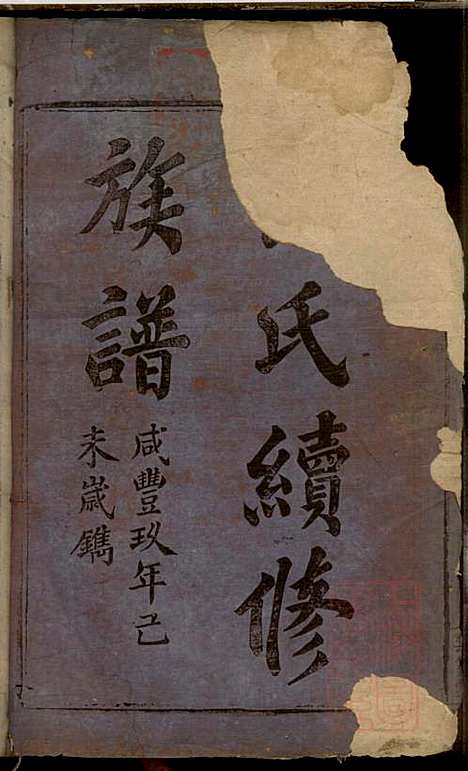 氏續修
族譜
咸豐玖年己
未歲鐫